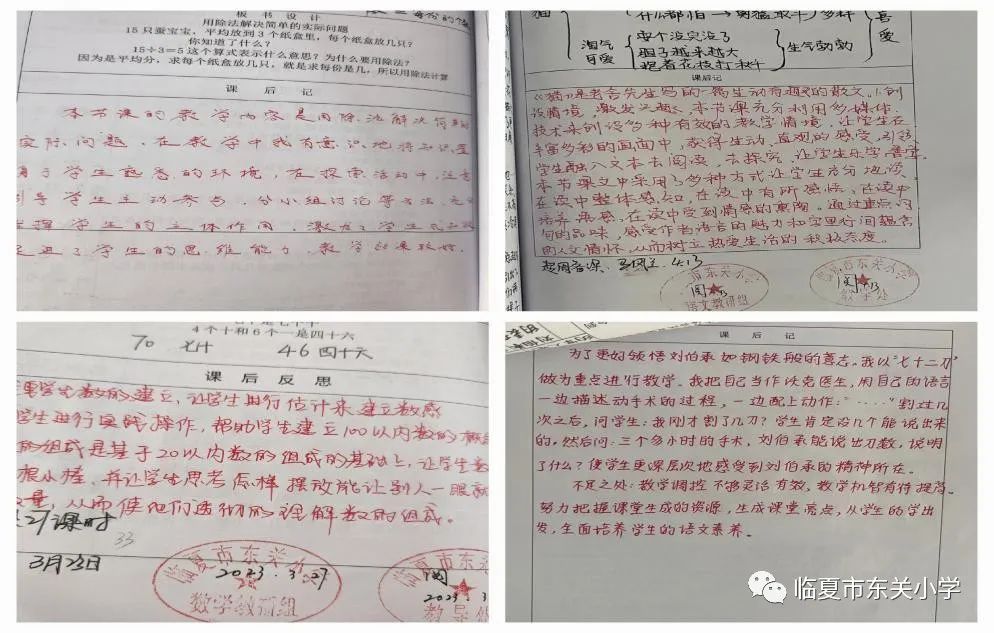 板书设计
用除法解决简单的实际问题
15只蚕宝宝，平均放到3个纸盒里，每个纸盒放几只？
你知道了什么？
15÷3=5这个算式表示什么意思？为什么要用除法？
因为是平均分，求每个纸盒放几只，就是求每份是几，所以用除法计算
课后记
本节课的教学内容是用除法解决简单的
实际问题。在教学中我有意识地将知识置
于学生熟悉的环境，在探索活动中，注意
引导学生主动参与，分小组讨论等方法，充分
发挥学生的主体作用，激发了学生
促进了学生的思维能力，教学效果较好。
猫
什么都怕→勇猛 多种
喜爱
淘气
可爱
耍个没完没了
胆子越来越大
抱着花枝打秋千
生气勃勃
课后记
《猫》是老舍先生写的一篇生动有趣的散文。1.创
设情境，激发兴趣。本节课充分利用多媒体
技术来创设多种有效的教学情境，让学生在
丰富多彩的画面中，获得生动、直观的感受，引导
学生融入文本去阅读，去探究，让学生乐学、善学。
本节课文中采用了多种方式让学生充分地读，
在读中整体感知，在读中有所感悟，在读中
培养语感，在读中受到情感的熏陶。通过重点词
句的品味，感受作者语言的魅力和字里行间蕴含
的人文情怀，从而树立热爱生活的积极态度。
4.13
临夏市东关小学
语文教研组
临夏市东关小学
教导处
4个十和6个一是四十六
70 七十 46 四十六
课后反思
学生数的建立，让学生进行估计来建立数感
学生进行实践操作，帮助学生建立100以内数的概念
的组成是基于20以内数的组成的基础上，让学生
根小棒，并让学生思考怎样摆放能让别人一眼就
数量，从而使他们透彻的理解数的组成。
课时
33
3月23日
临夏市东关小学
2023.3.27
数学教研组
阅
2023.3
教导处
课后记
为了更好领悟刘伯承如钢铁般的意志。我以“七十二刀”
做为重点进行教学。我把自己当作沃克医生，用自己的语言
一边描述动手术的过程，一边配上动作：“……”割过几
次之后，问学生：我刚才割了几刀？学生肯定没几个能说出来
的。然后问：三个多小时的手术，刘伯承能说出刀数，说明
了什么？使学生更深层次地感受到刘伯承的精神所在。
不足之处：教学调控不够灵活有效，教学机智有待提高。
努力把握课堂生成的资源，生成课堂亮点，从学生的学出
发，全面培养学生的语文素养。
临夏市东关小学